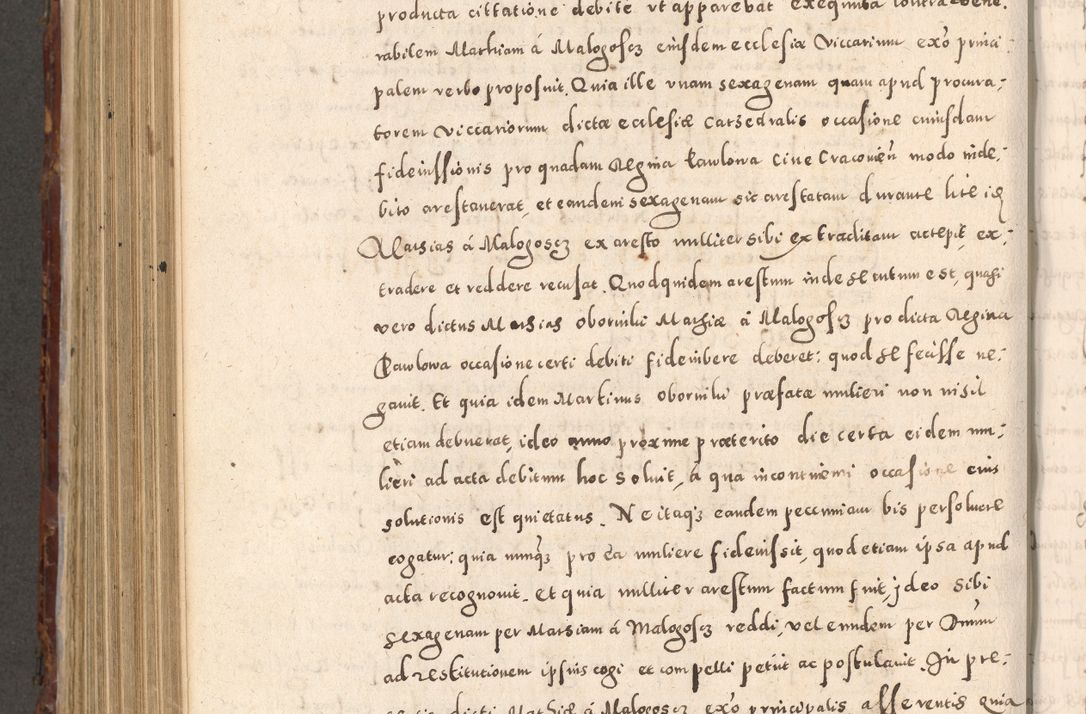 producta cittatione debite vt apparebat exequuta contra vene:
rabilem Mathiam á Malogoscz eiusdem ecclesiæ Viccarium exº princi:
palem verbo proposuit. Quia ille vnam sexagenam quam apud procura:
torem viccariorum dictæ ecclesiæ Catzedralis occasione cuiusdam
fideiussionis pro quadam Regina Pawlowa Ciue Cracovieñ modo inde:
bito arestauerat, et eandem sexagenam sic arestatam durante lite id
Matzias á Malogoscz ex aresto nulliter sibi extraditam accepit, ex:
tradere et reddere recusat. Quodquidem arestum inde secutum est, quasi
vero dictus Matzias oborniki Mathiæ á Malogoscz pro dicta Regina
Pawlowa occasione certi debiti fideiubere deberet: quod se fecisse ne:
gauit. Et quia idem Martinus praefatæ mulieri non nisil
etiam debuerat, ideo anno proxime præterito die certa eidem mu:
lieri ad acta debitum hoc soluit, á qua incontinenti occasione eius
solutionis est quietatus. Ne itaqz eandem pecuniam bis persoluere
cogatur: quia nunqz pro ea muliere fideiussit, quod etiam ipsa apud
acta recognouit. Et quia nulliter arestum factum fuit, jdeo sibi
sexagenam per Matziam á Malogoscz reddi, vel eundem per Dnum
ad restitutionem ipsius cogi et compelli petiit ac postulauit. In pre:
dicti Mathiæ á Malogoscz exº principalis asserentis quia